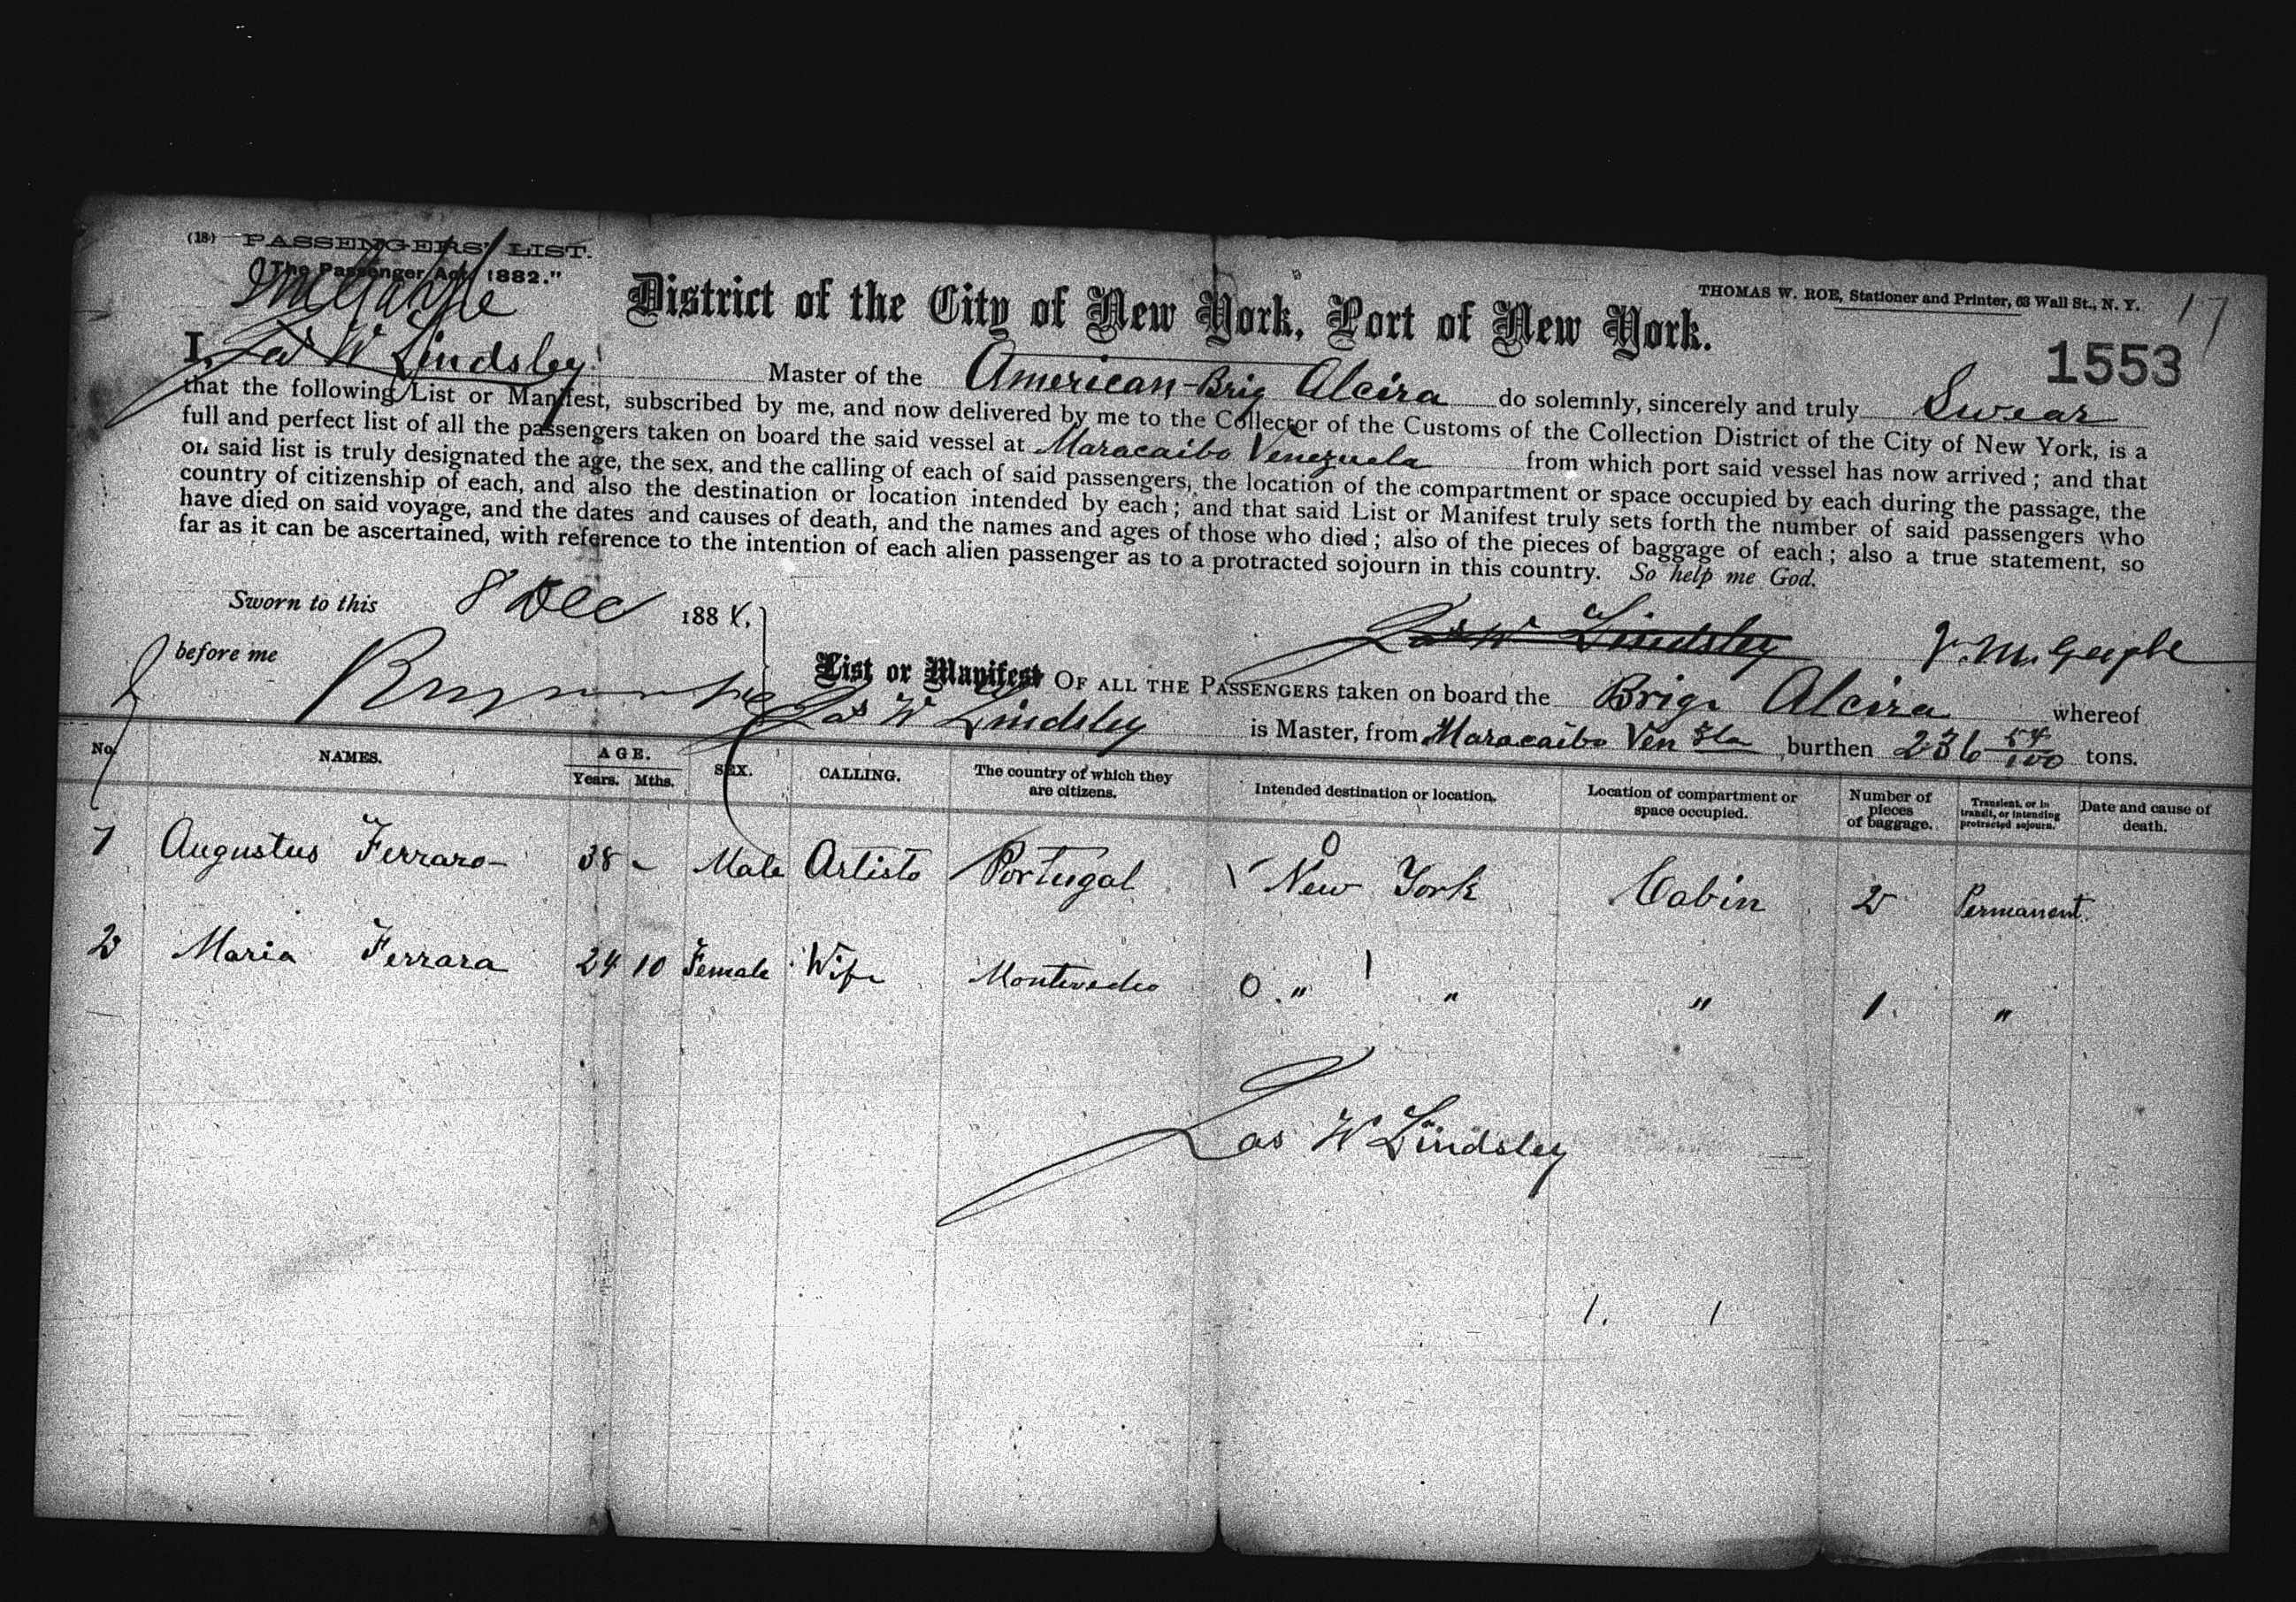 (18) PASSENGERS' LIST.
"The Passenger Act, 1882."
THOMAS W. ROE, Stationer and Printer, 63 Wall St., N. Y.
17
District of the City of New York, Port of New York.
1553
I, Jas W Lindsley Master of the American Brig Alcira do solemnly, sincerely and truly Swear
that the following List or Manifest, subscribed by me, and now delivered by me to the Collector of the Customs of the Collection District of the City of New York, is a
full and perfect list of all the passengers taken on board the said vessel at Maracaibo Venezuela from which port said vessel has now arrived; and that
on said list is truly designated the age, the sex, and the calling of each of said passengers, the location of the compartment or space occupied by each during the passage, the
country of citizenship of each, and also the destination or location intended by each; and that said List or Manifest truly sets forth the number of said passengers who
have died on said voyage, and the dates and causes of death, and the names and ages of those who died; also of the pieces of baggage of each; also a true statement, so
far as it can be ascertained, with reference to the intention of each alien passenger as to a protracted sojourn in this country. So help me God.
Sworn to this 8 Dec 188
Jas W Lindsley
before me
List or Manifest OF ALL THE PASSENGERS taken on board the Brig Alcira whereof
Jas W Lindsley is Master, from Maracaibo Ven zla burthen 236 54/100 tons.
No. NAMES. AGE. Years. Mths. SEX. CALLING. The country of which they are citizens. Intended destination or location. Location of compartment or space occupied. Number of pieces of baggage. Transient, or in transit, or intending protracted sojourn. Date and cause of death.
1 Augustus Ferraro 38 - Male Artisto Portugal New York Cabin 2 Permanent.
2 Maria Ferrara 24 10 Female Wife Montevedeo 0 " 1 " " 1. "
Jas W Lindsley
1. 1